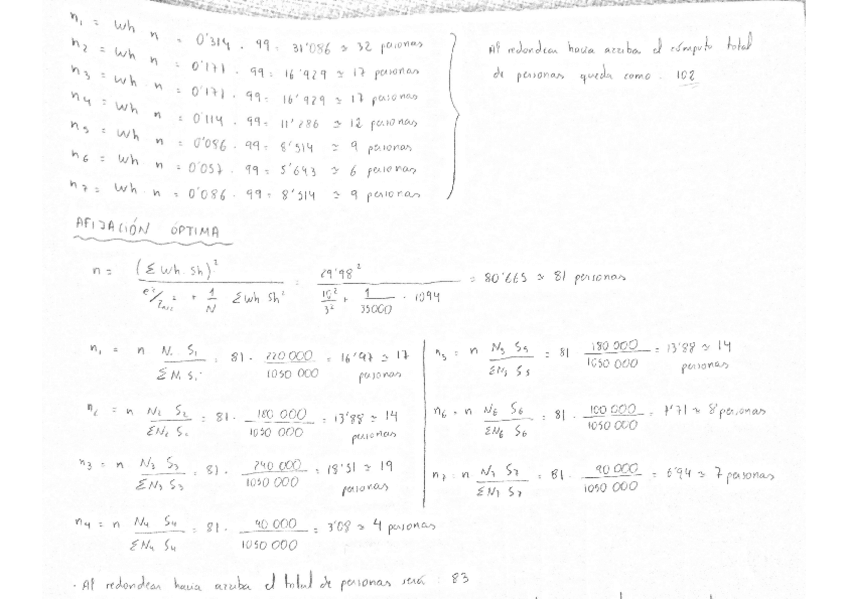 n₁ = Wh n = 0'314 · 99 = 31'086 ≃ 32 personas
n₂ = Wh n = 0'171 · 99 = 16'929 ≃ 17 personas
n₃ = Wh n = 0'171 · 99 = 16'929 ≃ 17 personas
n₄ = Wh n = 0'114 · 99 = 11'286 ≃ 12 personas
n₅ = Wh n = 0'086 · 99 = 8'514 ≃ 9 personas
n₆ = Wh n = 0'057 · 99 = 5'643 ≃ 6 personas
n₇ = Wh · n = 0'086 · 99 = 8'514 ≃ 9 personas
Al redondear hacia arriba el cómputo total
de personas queda como. 102
AFIJACIÓN ÓPTIMA
n = (Σ Wh · Sh)² / (e²/Zα/2² + 1/N Σ Wh Sh²) = 29'98² / (/3² + 1/35000 · 1094) = 80'665 ≃ 81 personas
n₁ = n N₁ S₁ / Σ N₁ S₁ = 81 · 220 000 / 1050 000 = 16'97 ≃ 17 personas
n₂ = n N₂ S₂ / Σ N₂ S₂ = 81 · 180 000 / 1050 000 = 13'88 ≃ 14 personas
n₃ = n · N₃ S₃ / Σ N₃ S₃ = 81 · 240 000 / 1050 000 = 18'51 ≃ 19 personas
n₄ = n N₄ S₄ / Σ N₄ S₄ = 81 · 40 000 / 1050 000 = 3'08 ≃ 4 personas
n₅ = n N₅ S₅ / Σ N₅ S₅ = 81 180 000 / 1050 000 = 13'88 ≃ 14 personas
n₆ = n N₆ S₆ / Σ N₆ S₆ = 81 · 100 000 / 1050 000 = 7'71 ≃ 8 personas
n₇ = n N₇ S₇ / Σ N₇ S₇ = 81 · 90 000 / 1050 000 = 6'94 ≃ 7 personas
· Al redondear hacia arriba el total de personas será : 83